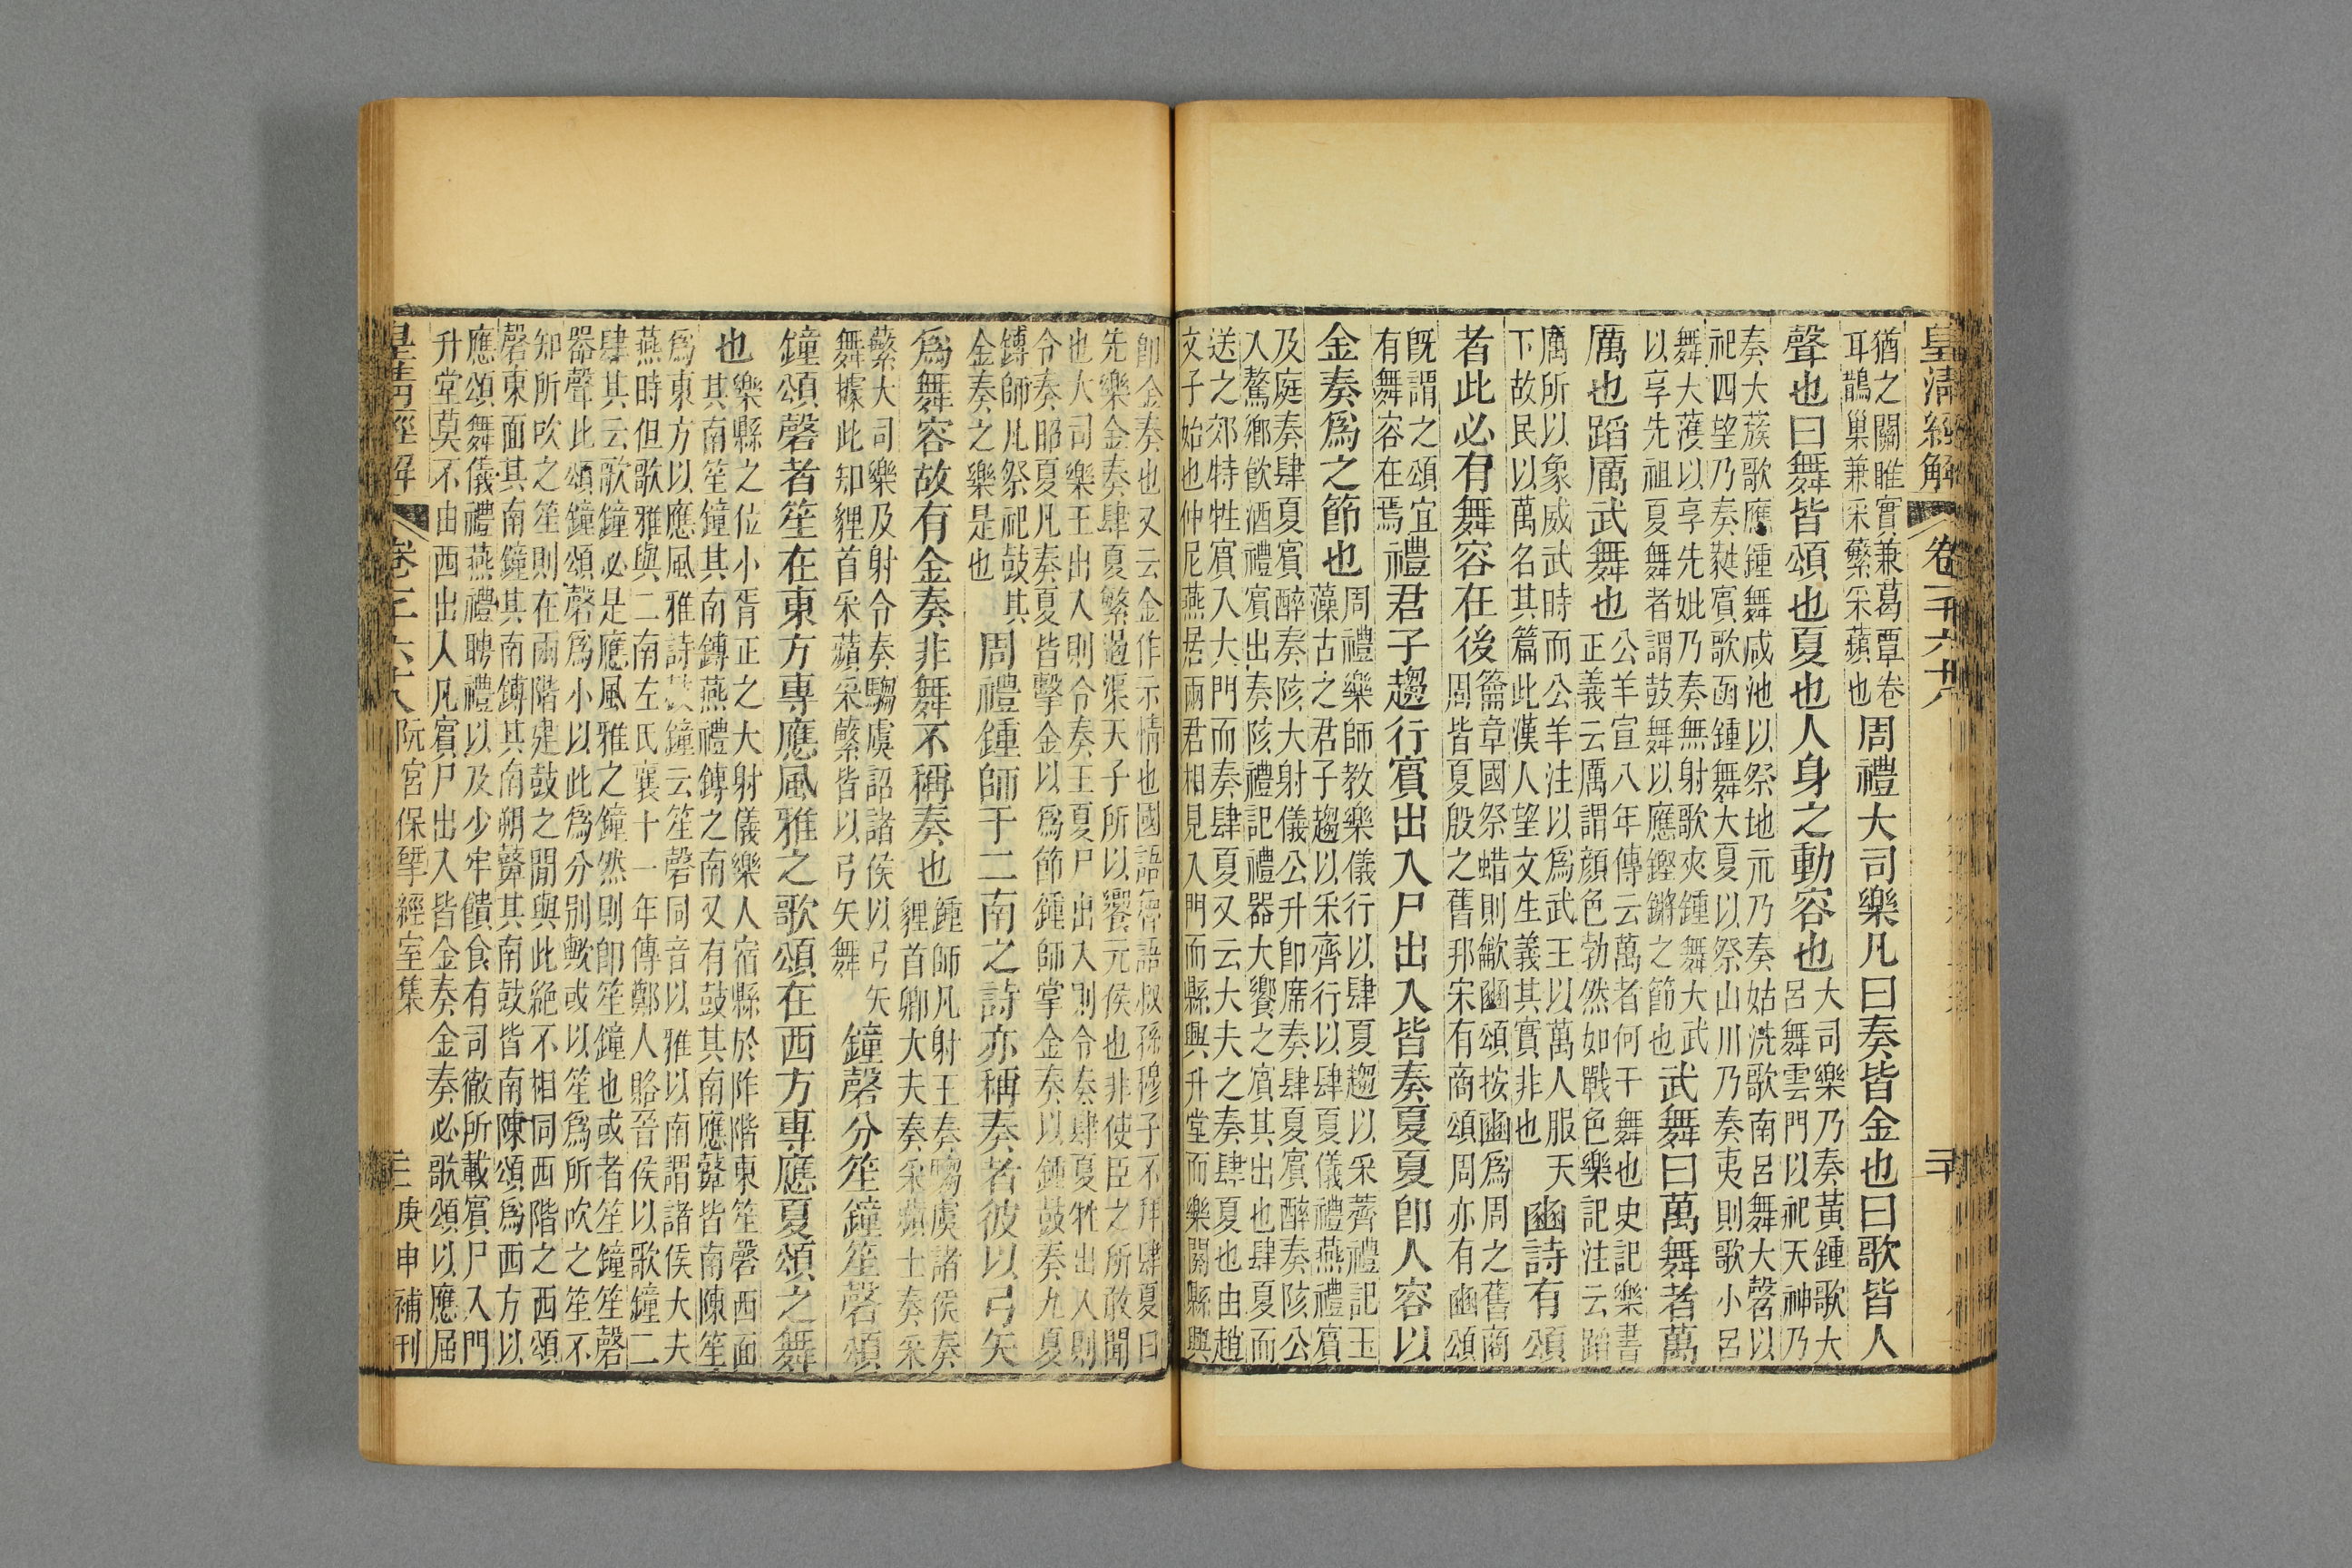 皇清經解 卷一千六十八 三十
猶之關雎實兼葛覃卷
耳鵲巢兼采蘩采蘋也
周禮大司樂凡曰奏皆金也曰歌皆人
聲也曰舞皆頌也夏也人身之動容也
大司樂乃奏黃鍾歌大
呂舞雲門以祀天神乃
奏大蔟歌應鍾舞咸池以祭地示乃奏姑洗歌南呂舞大磬以
祀四望乃奏蕤賓歌函鍾舞大夏以祭山川乃奏夷則歌小呂
舞大濩以享先妣乃奏無射歌夾鍾舞大武
以享先祖夏舞者謂鼓舞以應鏗鏘之節也
武舞曰萬舞者萬
厲也蹈厲武舞也
公羊宣八年傳云萬者何干舞也史記樂書
正義云厲謂顏色勃然如戰色樂記注云蹈
厲所以象威武時而公羊注以爲武王以萬人服天
下故民以萬名其篇此漢人望文生義其實非也
豳詩有頌
者此必有舞容在後
籥章國祭蜡則龡豳頌按豳爲周之舊商
周皆夏殷之舊那宋有商頌周亦有豳頌
既謂之頌宜
有舞容在焉
禮君子趨行賓出入尸出入皆奏夏夏卽人容以
金奏爲之節也
周禮樂師教樂儀行以肆夏趨以采薺禮記玉
藻古之君子趨以采齊行以肆夏儀禮燕禮賓
及庭奏肆夏賓醉奏陔大射儀公升卽席奏肆夏賓醉奏陔公
入驁鄉飲酒禮賓出奏陔禮記禮器大饗之賓其出也肆夏而
送之郊特牲賓入大門而奏肆夏又云大夫之奏肆夏也由趙
文子始也仲尼燕居兩君相見入門而縣興升堂而樂闋縣興
卽金奏也又云金作示情也國語魯語叔孫穆子不拜肆夏曰
先樂金奏肆夏繁遏渠天子所以饗元侯也非使臣之所敢聞
也大司樂王出入則令奏王夏尸出入則令奏肆夏牲出入則
令奏昭夏凡奏夏皆擊金以爲節鍾師掌金奏以鍾鼓奏九夏
鎛師凡祭祀鼓其
金奏之樂是也
周禮鍾師于二南之詩亦稱奏者彼以弓矢
爲舞容故有金奏非舞不稱奏也
鍾師凡射王奏騶虞諸侯奏
貍首卿大夫奏采蘋士奏采
蘩大司樂及射令奏騶虞詔諸侯以弓矢
舞據此知貍首采蘋采蘩皆以弓矢舞
鐘磬分笙鐘笙磬頌
鐘頌磬者笙在東方專應風雅之歌頌在西方專應夏頌之舞
也
樂縣之位小胥正之大射儀樂人宿縣於阼階東笙磬西面
其南笙鐘其南鎛燕禮鎛之南又有鼓其南應鼙皆南陳笙
爲東方以應風雅詩鼓鐘云笙磬同音以雅以南謂諸侯大夫
燕時但歌雅與二南左氏襄十一年傳鄭人賂晉侯以歌鐘二
肆其云歌鐘必是應風雅之鐘然則卽笙鐘也或者笙鐘笙磬
器聲此頌鐘頌磬爲小以此爲分別歟或以笙爲所吹之笙不
知所吹之笙則在兩階建鼓之閒與此絕不相同西階之西頌
磬東面其南鐘其南鎛其南朔鼙其南鼓皆南陳頌爲西方以
應頌舞儀禮燕禮聘禮以及少牢饋食有司徹所載賓尸入門
升堂莫不由西出入凡賓尸出入皆金奏金奏必歌頌以應屈
皇清經解 卷一千六十八 阮宮保揅經室集 三 庚申補刊